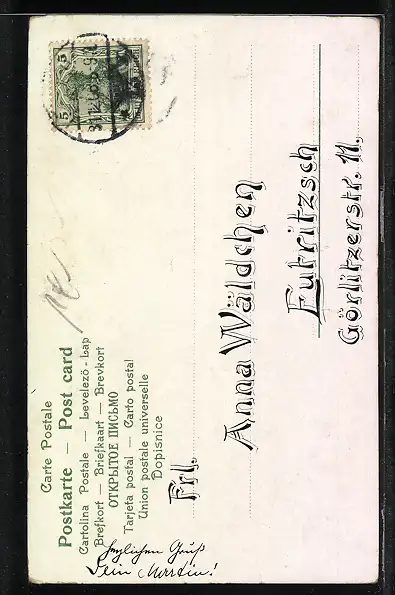 Carte Postale
Postkarte — Post card
Cartolina Postale — Levelező-Lap
Brefkort — Briefkaart — Brevkort
ОТКРЫТОЕ ПИСЬМО
Tarjeta postal — Carto postal
Union postale universelle
Dopisnice
5 5
5
Frl.
Anna Wäldchen
Eutritzsch
Görlitzerstr. 11.
herzlichen Gruß
Dein Martin!